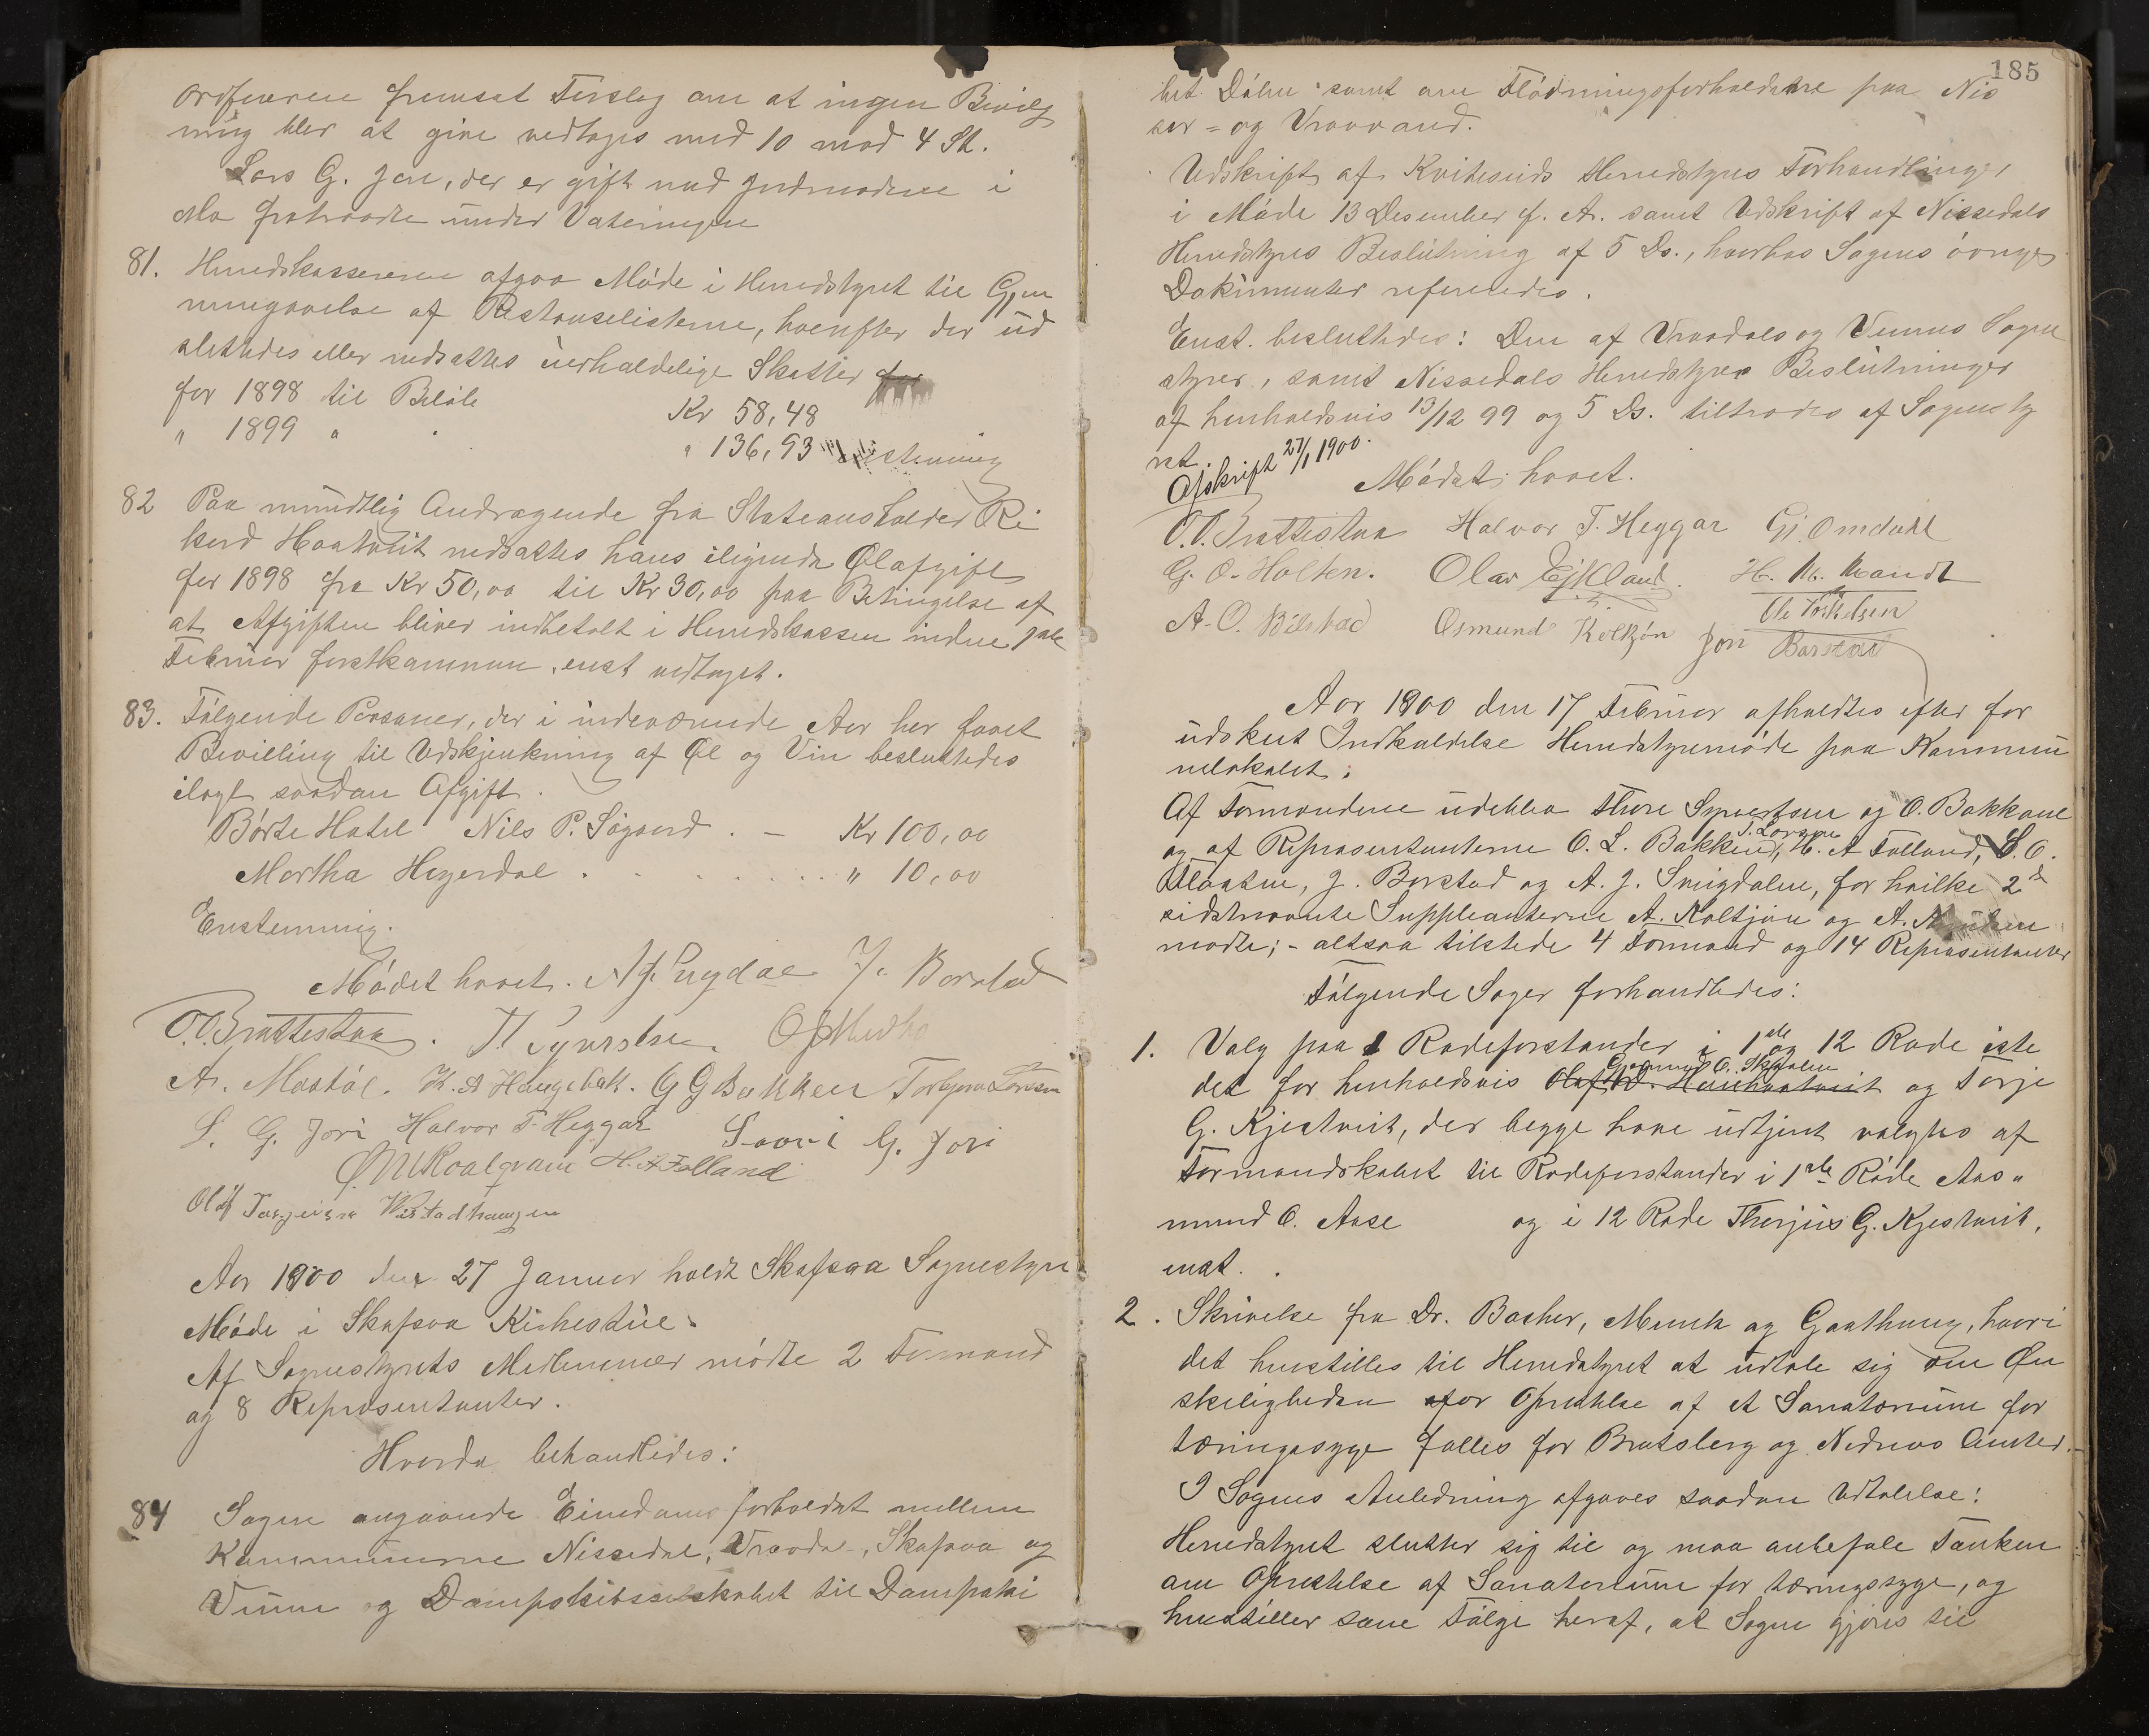 Ordføreren fremsat Forslag om at ingen Bevilg
ning blev at give vedtoges med 10 mod 4 St.
Lars G. Jore, der er gift med Jordmoderen i
Mo fratraadte under Voteringen
81. Herredskassereren afgav Møde i Herredstyret til Gjen
nemgaaelse af Restanselisterne, hvorefter der ud
slettedes eller nedsattes uerholdelige Skatter
for 1898 til Beløb Kr 58,48
" 1899 " " 136,93
82 Paa mundtlig Andragende fra Skatteansholder Ri
kard nedsattes hans ilignede Ølafgift
for 1898 fra Kr 50,00 til Kr 30,00 paa Betingelse af
at Afgiften bliver indbetalt i Herredskassen inden 1ste
Februar førstkommen. enst vedtaget.
83. Følgende Personer, der i indeværende Aar har faaet
Bevilling til Udskjenkning af Øl og Vin besluttedes
ilagt saadan Afgift.
Børte Hotel Nils P. Søgaard . – Kr 100,00
Martha Hegerdal . . . . " 10,00
Enstemmig.
Mødet hævet. J. Borstad
O.O. Brattestaa.
A. Mostøl. K. A Haugebak. G G Bakken Torbjørn Larsen
L. G. Jori Halvor T. Heggar Saavi G. Jori
H. A. Folland
Olaf Torgeirson Vistadhaugen
Aar 1900 den 27 Januar holdt Skafsaa Sognestyre
Møde i Skafsaa Kirkestue.
Af Sognestyrets Medlemmer mødte 2 Formænd
og 8 Repræsentanter.
Hvorda behandledes:
84 Sagen angaaende Eiendomsforholdet mellem
Kommunerne Nissedal, Vraadal, Skafsaa og
Vinne og Dampskibsselskabet til Dampski
185
bet Dølen samt om Flødningsforholdene paa Nis
ser- og Vraavand.
Udskrift af Kviteseids Herredstyres Forhandlinger
i Møde 13 Desember f. A. samt Udskrift af Nissedals
Herredstyres Beslutning af 5 Ds., hvorhos Sagens øvrige
Dokumenter refereredes.
Enst. besluttedes: Den af Vraadals og Vinnes Sogne
styrer, samt Nissedals Herredstyres Beslutninger
af henholdsvis 13/12 99 og 5 Ds. tiltrædes af Sognesty
ret.
Afskrift 27/1 1900.
Mødet hævet.
O.O. Brattestaa Halvor T. Heggar Gj. Omdahl
G. O. Holten. Olav Ejkland. H. M. Mandt
A. O. Bilstad Osmund Koltjøn Jon Borstad
Aar 1900 den 17 Februar afholdtes efter for
udskeet Indkaldelse Herredstyremøde paa Kommu
nelokalet.
Af Formændene udeblev Thore Syvertsen og O. Bakkane
og af Repræsentanterne O. L. Bakken, T. Larsen, H. A Folland, S. O.
J. Borstad og A. J. Smigdalen, for hvilke 2de
sidstnævnte Suppleanterne A. Koltjøn og A.
mødte; - altsaa tilstede 4 Formænd og 14 Repræsentanter
Følgende Sager forhandledes:
1. Valg paa 2 Rodeforstander i 1ste og 12 Rode iste
Gunnund O. Skjalen
det for henholdsvis og Torje
G. Kjestveit, der begge have udtjent valgtes af
Formandskabet til Rodeforstander i 1ste Rode Aas-
mund O. Aase og i 12 Rode Therjus G. Kjestveit,
enst.
2. Skrivelse fra Dr. Bacher, Munk og Gaathaug, hvori
det henstilles til Herredstyret at udtale sig om Øn
skeligheden for Oprettelse af et Sanatorium for
tæringssyge fælles for Bratsberg og Nedenes Amter.
I Sagens Anledning afgaves saadan Udtalelse:
Herredstyret slutter sig til og maa anbefale Tanken
om Oprettelse af Sanatorium for tæringssyge, og
henstiller som Følge heraf, at Sagen gjøres til